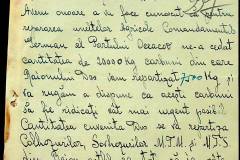 Avem onoare a vă face cunoscut că pentru
repararea uneltelor agricole Comandamentul
German al Portului Oceacov ne-a cedat
cantitatea de 20000 kg carbuni din care
Raionului Dvs vam repartizat 7500 Kg și
Vă rugăm a dispune ca acești carbuni
să fie ridicați cât mai urgent posibil
Cantitatea cuvenita Dvs se va repartiza
Colhozurilor Sovhozurilor M.T.M. și M.T.S.
din Raion